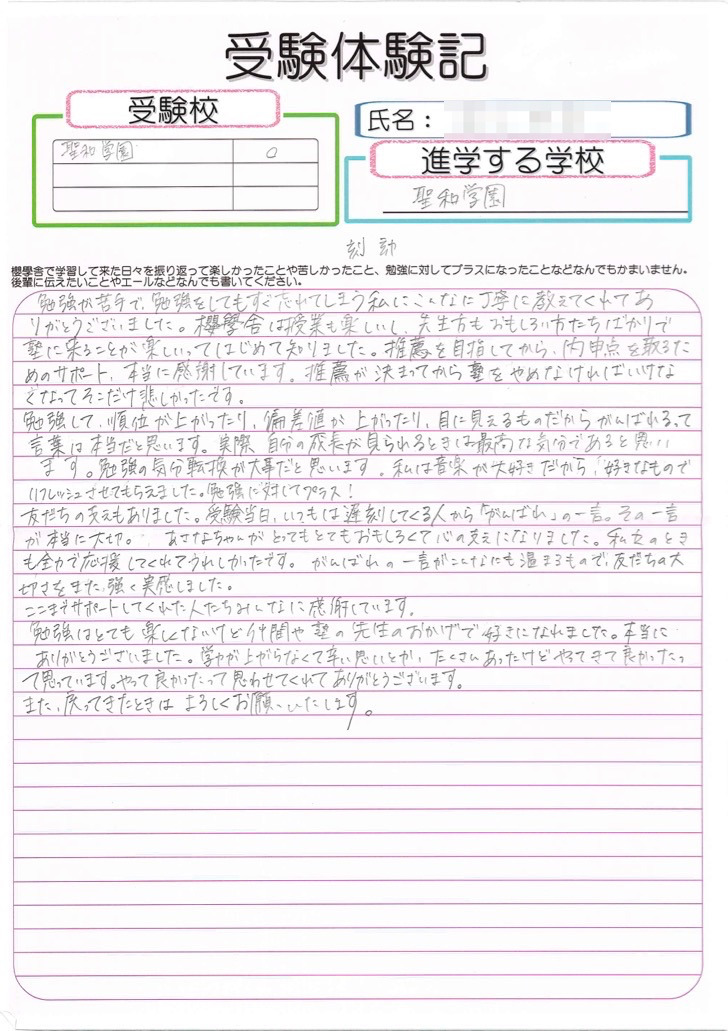 受験体験記
受験校
聖和学園 ○
氏名：
進学する学校
聖和学園
櫻學舎で学習して来た日々を振り返って楽しかったことや苦しかったこと、勉強に対してプラスになったことなどなんでもかまいません。
後輩に伝えたいことやエールなどなんでも書いてください。
勉強が苦手で、勉強をしてもすぐ忘れてしまう私にこんなに丁寧に教えてくれてあ
りがとうございました。櫻學舎は授業も楽しいし、先生方もおもしろい方たちばかりで
塾に来ることが楽しいってはじめて知りました。推薦を目指してから、内申点を取るた
めのサポート、本当に感謝しています。推薦が決まってから塾をやめなければいけな
くなってそこだけ悲しかったです。
勉強して、順位が上がったり、偏差値が上がったり、目に見えるものだからがんばれるって
言葉は本当だと思います。実際、自分の成長が見られるときは最高な気分であると思い
ます。勉強の気分転換が大事だと思います。私は音楽が大好きだから、好きなもので
リフレッシュさせてもらえました。勉強に対してプラス！
友だちの支えもありました。受験当日、いつもは遅刻してくる人から「がんばれ」の一言。その一言
が本当に大切。 あさなちゃんがとってもとてもおもしろくて心の支えになりました。私立のとき
も全力で応援してくれてうれしかったです。がんばれの一言がこんなにも温まるもので、友だちの大
切さをまた、強く実感しました。
ここまでサポートしてくれた人たちみんなに感謝しています。
勉強はとても楽しくないけど仲間や塾の先生のおかげで好きになれました。本当に
ありがとうございました。学力が上がらなくて辛い思いとか、たくさんあったけどやってきて良かったっ
て思っています。やって良かったって思わせてくれてありがとうございます。
また、戻ってきたときはよろしくお願いいたします。